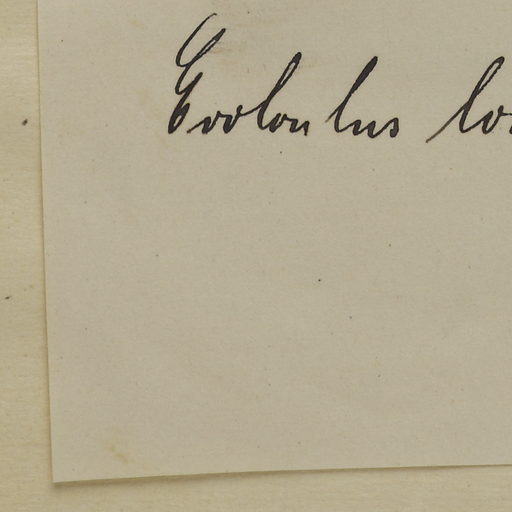 Evolvulus lo